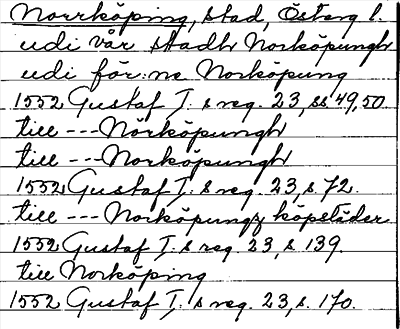 Norrköping, stad, Österg l.
udi vår stadh Norköpungh
udi för:ne Norköpung
1552 Gustaf I. s reg. 23, ss 49, 50
till --- Nörköpungh
till --- Norköpungh
1552 Gustaf I. s reg. 23, s. 72.
till --- Norköpungz köpstäder
1552 Gustaf I. s reg. 23, s. 139.
till Norköping
1552 Gustaf I. s reg. 23, s. 170.